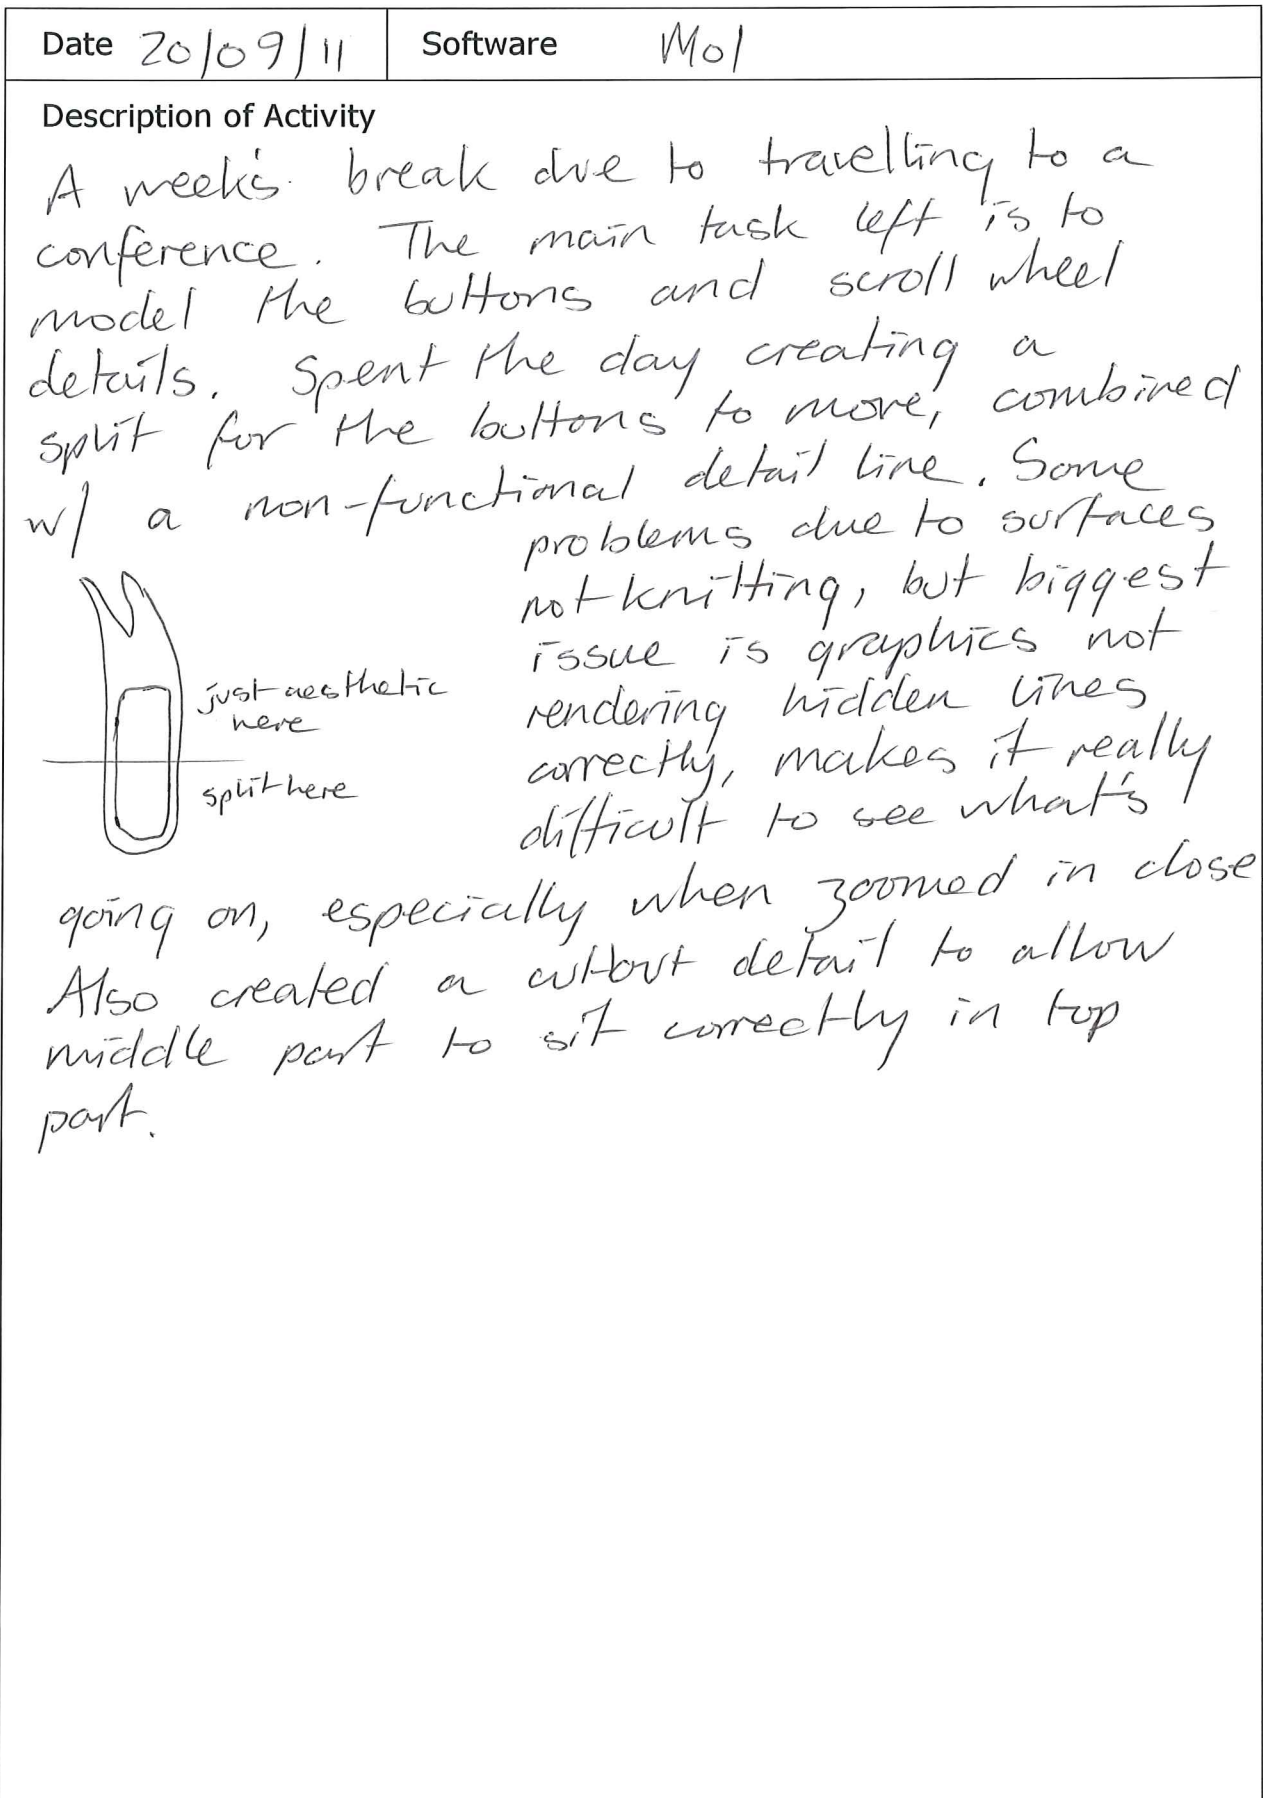 Date 20/09/11 Software MoI
Description of Activity
A week's break due to travelling to a
conference. The main task left is to
model the buttons and scroll wheel
details. Spent the day creating a
split for the buttons to move, combined
w/ a non-functional detail line. Some
problems due to surfaces
not knitting, but biggest
issue is graphics not
rendering hidden lines
correctly, makes it really
difficult to see what's
just aesthetic
here
split here
going on, especially when zoomed in close
Also created a cutout detail to allow
middle part to sit correctly in top
part.